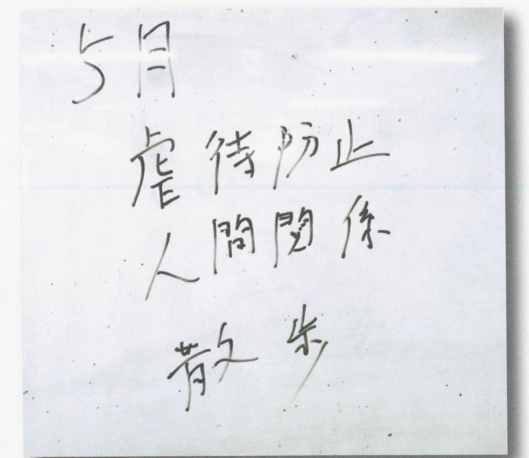 5月
虐待防止
人間関係
散歩